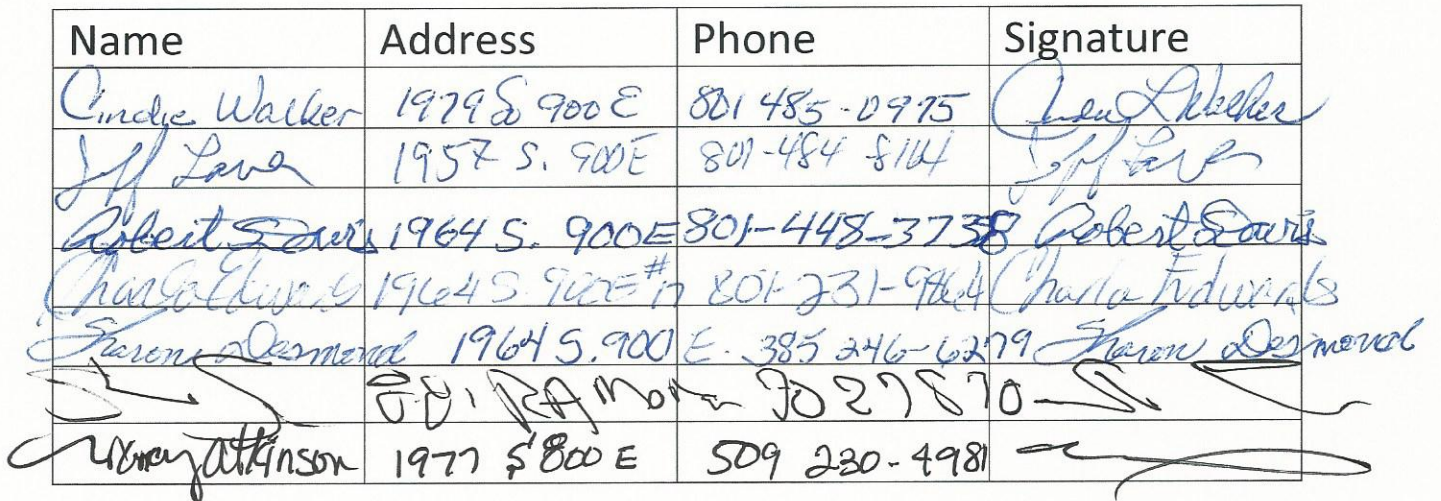 Name Address Phone Signature
Cindie Walker 1979 So 900 E 801 485-0975 Walker
Jeff 1957 S. 900E 801-484-8164 Jeff
Robert Davis 1964 S. 900E 801-448-3738 Robert Davis
Charla Edwards 1964 S. 900E # 801-231-9864 Charla Edwards
Sharon Desmond 1964 S. 900 E. 385 246-6279 Sharon Desmond
Atkinson 1977 S 800 E 509 230-4981